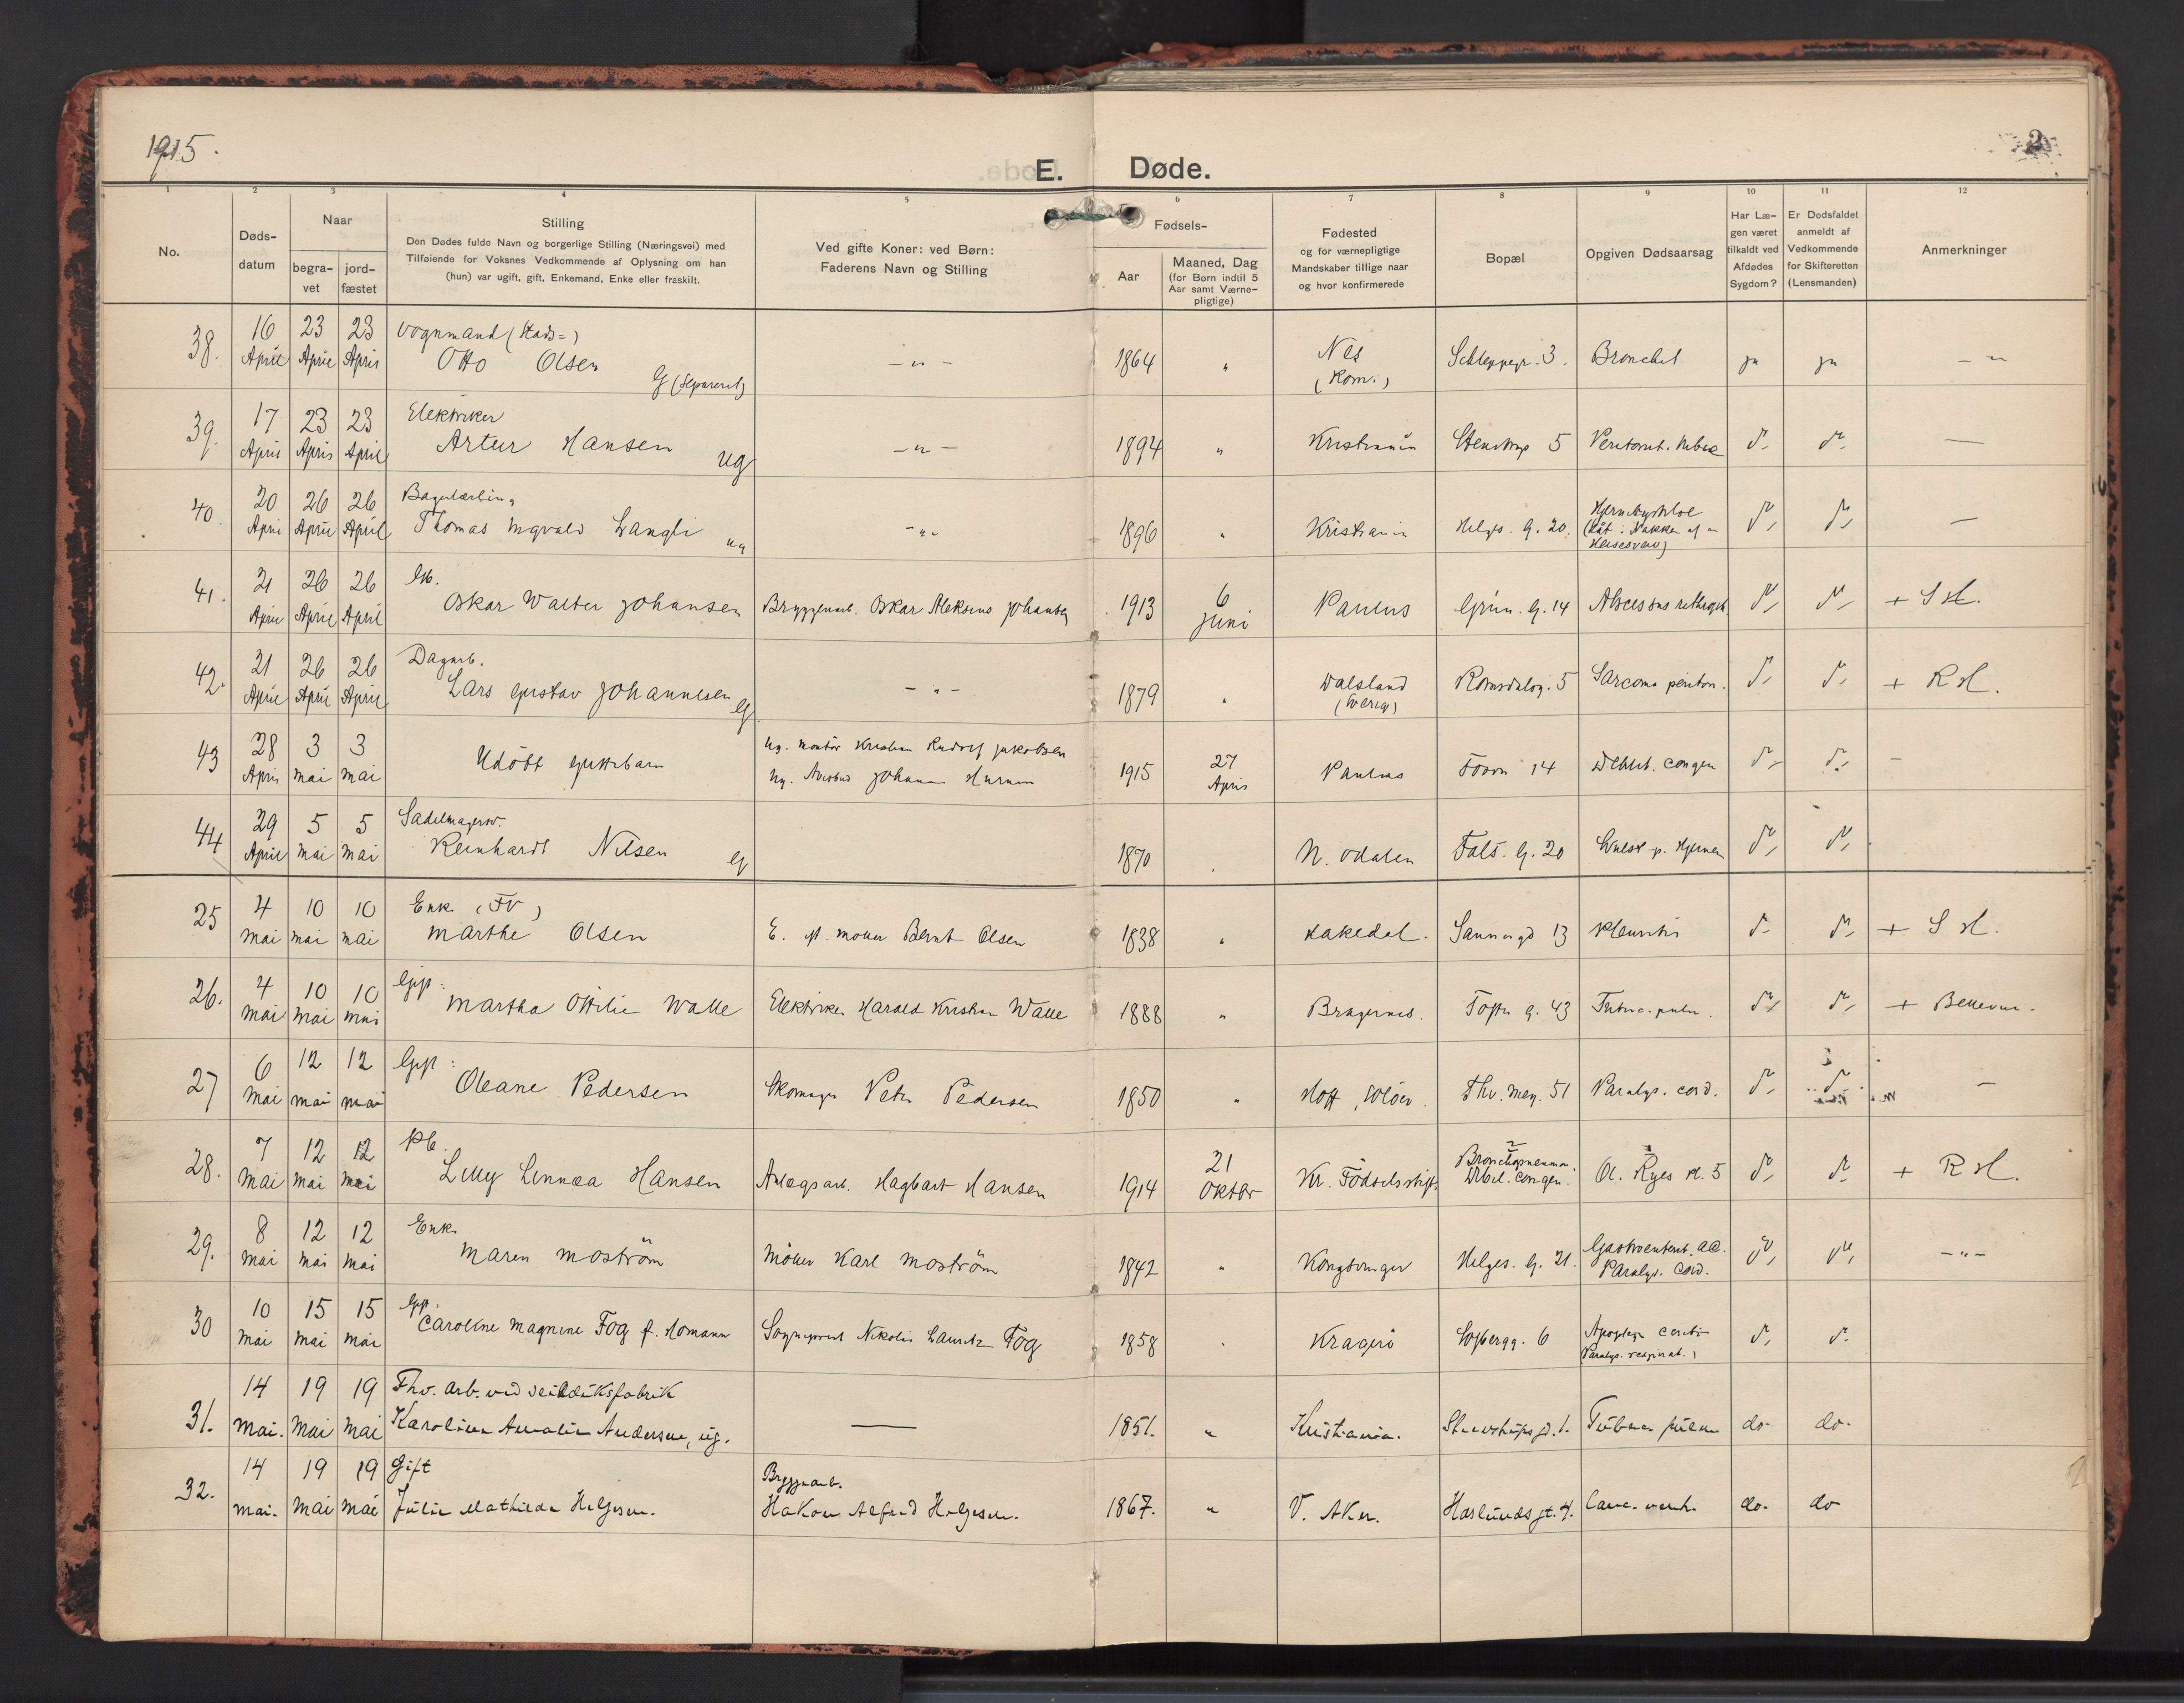 1915.
2
E. Døde.
1 2 3 4 5 6 7 8 9 10 11 12
No.
Døds-
datum
Naar
begra-
vet
jord-
fæstet
Stilling
Den Dødes fulde Navn og borgerlige Stilling (Næringsvei) med
Tilføiende for Voksnes Vedkommende af Oplysning om han
(hun) var ugift, gift, Enkemand, Enke eller fraskilt.
Ved gifte Koner: ved Børn:
Faderens Navn og Stilling
Fødsels-
Aar
Maaned, Dag
(for Børn indtil 5
Aar samt Værne-
pligtige)
Fødested
og for værnepligtige
Mandskaber tillige naar
og hvor konfirmerede
Bopæl
Opgiven Dødsaarsag
Har Læ-
gen været
tilkaldt ved
Afdødes
Sygdom?
Er Dødsfaldet
anmeldt af
Vedkommende
for Skifteretten
(Lensmanden)
Anmerkninger
38. 16 April 23 April 23 April
Vognmand (Stads=)
Otto Olsen G (separeret)
— „ — 1864 „ Nes
(Rom.)
Schleppegr. 3. Bronchit ja ja — „
39. 17 April 23 April 23 April
Elektriker
Artur Hansen ug
— „ — 1894 „ Kristiania Stenstrup 5 Peritonit. d. d. —
40. 20 April 26 April 26 April
Thomas Ingvald Langli ug
— „ — 1896 „ Kristiania Helges. G. 20. d. d. —
41. 21 April 26 April 26 April
Oskar Walter Johansen
Bryggeriarb. Oskar Aleksius Johansen
1913 6
Juni
Paulus Grün. G. 14 Abscessus d. d. + S H.
42. 21 April 26 April 26 April
Dagarb.
Lars Gustav Johannesen G
— „ — 1879 „ Dalsland
(Sverig)
Romsdalsg. 5 Sarcoma periton. d. d. + R H.
43 28 April 3 Mai 3 Mai
Udöbt Guttebarn
Ug. Montör Kristian Rudolf Jakobsen
Ug. Johanne
1915 27
April
Paulus 14 Debilit. congen d. d. —
44 29 April 5 Mai 5 Mai
Sadelmagersv.
Reinhardt Nilsen G
1870 N. Odalen Fals. G. 20 p. Hjernen d. d.
25 4 Mai 10 Mai 10 Mai
Enk (FV)
Marthe Olsen
E. ft. Möller Bernt Olsen
1838 „ Hakedal. Sannergd 13 Pleuritis d. d. + S H.
26. 4 Mai 10 Mai 10 Mai
Gift:
Martha Ottilie Walle
Elektriker Harald Kristian Walle
1888 „ Bragernes. Tofte G. 43 Tuberc. pulm. d. d. + Bellevue.
27 6 Mai 12 Mai 12 Mai
Gift:
Oleane Pedersen
Skomager Peter Pedersen
1850 „ Hoff, Solöer. Thv. Mey. 51 Paralys. cord. d. d. —
28. 7 Mai 12 Mai 12 Mai
Pb.
Lilly Linnæa Hansen
Anlægsarb. Hagbart Hansen
1914 21
Oktbr
Kr. Födselsstift. Bronchopneumon.
Debil. congen.
Ol. Ryes pl. 5 d. d. + R H.
29. 8 Mai 12 Mai 12 Mai
Enk.
Maren Moström
Möller Karl Moström
1842 „ Kongsvinger Helges. G. 21. Gastroenterit. ac.
Paralys. cord.
d. d. — „ —
30 10 Mai 15 Mai 15 Mai
Gift.
Caroline Magnine Fog f. Homann
Sogneprest Nikolai Lauritz Fog
1858 Kragerö Sofbergg. 6 Apoplexia cerebri
Paralys. respirat.
d. d.
31. 14 Mai. 19 Mai 19 Mai
Fhv. arb. ved seildüksfabrik
Karoline Amalie Andersen, ug.
—— 1851. „ Kristiania. 1. Tuberc. pülm do. do.
32. 14 Mai. 19 Mai 19 Mai
Gift
Jülie Mathilde Helgesen.
Bryggeriarb.
Hakon Alfred Helgesen.
1867. „ V. Aker. Haslünds gt. 4. Canc. ventr. do. do